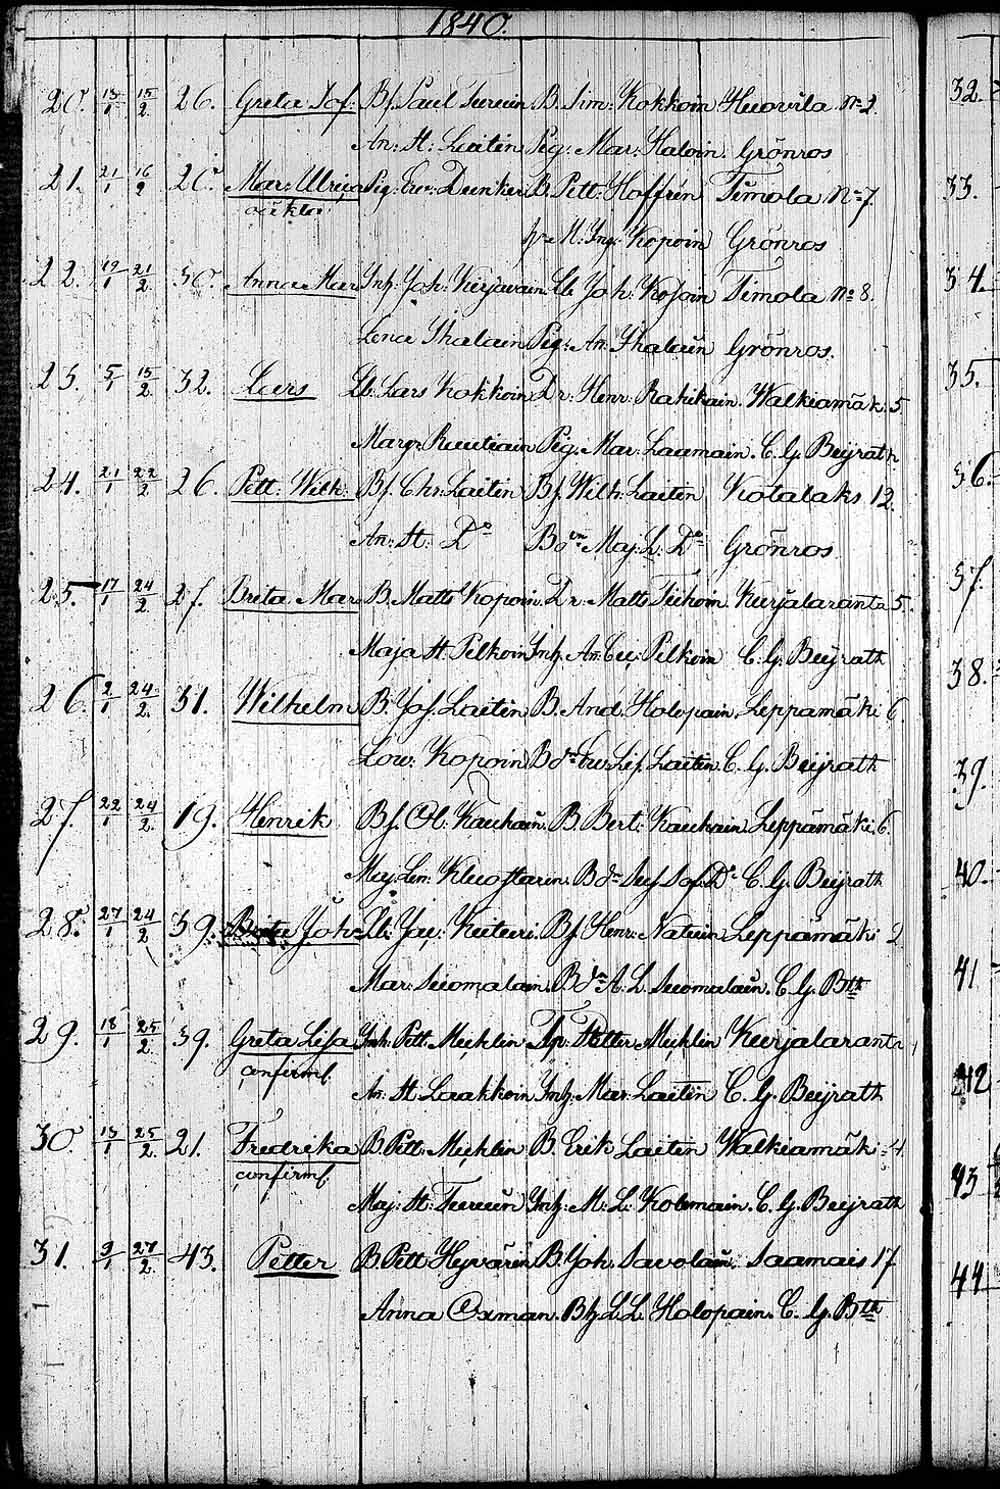 1840.
20. 13/1 15/2 26. Greta Sof: Bf. Paul Turuin B. Sim: Kokkoin Huovila No 2.
An: St: Laitin Pig: Mar: Haloin. Grönros
21. 21/1 16/2 20. Mar: Ulrica Pig: Ev: Dunker B. Pett: Hoffrén Timola No 7.
oäkta
M: Ing: Kopoin Grönros
22. 19/1 21/2 30. Anna Mar Inh: Joh: Kirjavain Lb Joh: Kosoin Timola No 8.
Lena Ihalain Pig: An: Ihalain Grönros.
23. 5/1 15/2 32. Lars Lb: Lars Kokkoin Dr: Henr: Rahikain. Walkiamäk: 5
Margr: Rautiain Pig: Mar: Laamain. C. G. Beijrath
24. 21/1 22/2 26. Pett: Wilh: Bf: Chr: Laitin Bf. Wilh: Laitin Kotalaks 12.
An: St: Do Bdrn Maj: L: Do Grönros
25. 17/1 24/2 27. Brita Mar B. Matts Kopoin. Dr: Matts Tiihoin Kurjalaranta 5.
Maja St. Pelkoin Inh. An: Cec: Pelkoin C. G. Beijrath
26. 2/1 24/2 31. Wilhelm B. Jos. Laitin B. And: Holopain. Leppämäki 6.
Lov: Kopoin Bdrn Ev: Lis. Laitin. C. G. Beijrath
27. 22/1 24/2 19. Henrik Bf. Ol: Kauhain B. Bert: Kauhain. Leppämäki. 6.
Maj: Len: Kluostarin. Sof. Do C. G. Beijrath
28. 27/1 24/2 39. Brita Joh: Lb: Jac: Kuteri Bf. Henr: Natuin Leppämäki 2
Mar: Suomalain. Bdrn A. L. Suomalain. C. G. Bth
29. 18/1 25/2 39. Greta Lisa Inh: Pett: Mechlin Petter Mechlin Kurjalaranta 1
confirmf.
An: St. Laakkoin Inh: Mar: Laitin C. G. Beijrath
30. 13/1 25/2 21. Fredrika B. Pett: Mechlin B. Erik Laitin Walkiamäk: 4
confirmf.
Maj: St: Turuin Inh: M: L: Kolemain. C. G. Beijrath
31. 3/1 27/2 43. Petter B. Pett Hyvärin B. Joh. Savolain Saamais 17
Anna Oxman. Bh. L. L. Holopain. C. G. Bth
32.
33.
34.
35.
36.
37.
38.
39.
40.
41
42
43
44